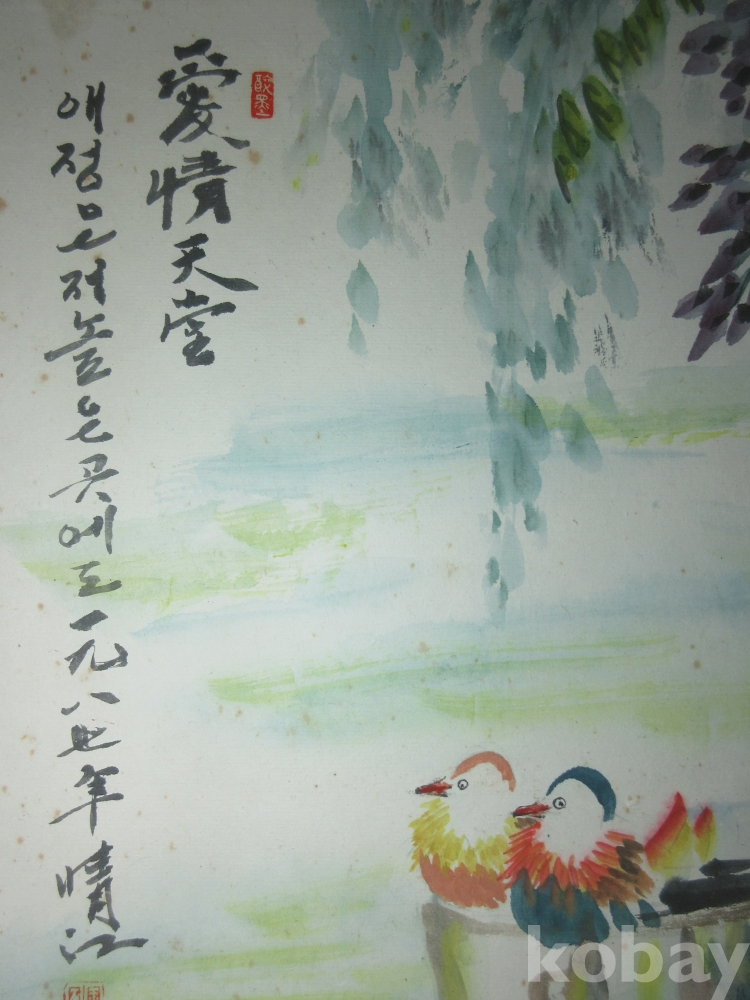 愛情天堂
애정은저높은곳에도一九八七年 晴江
kobay